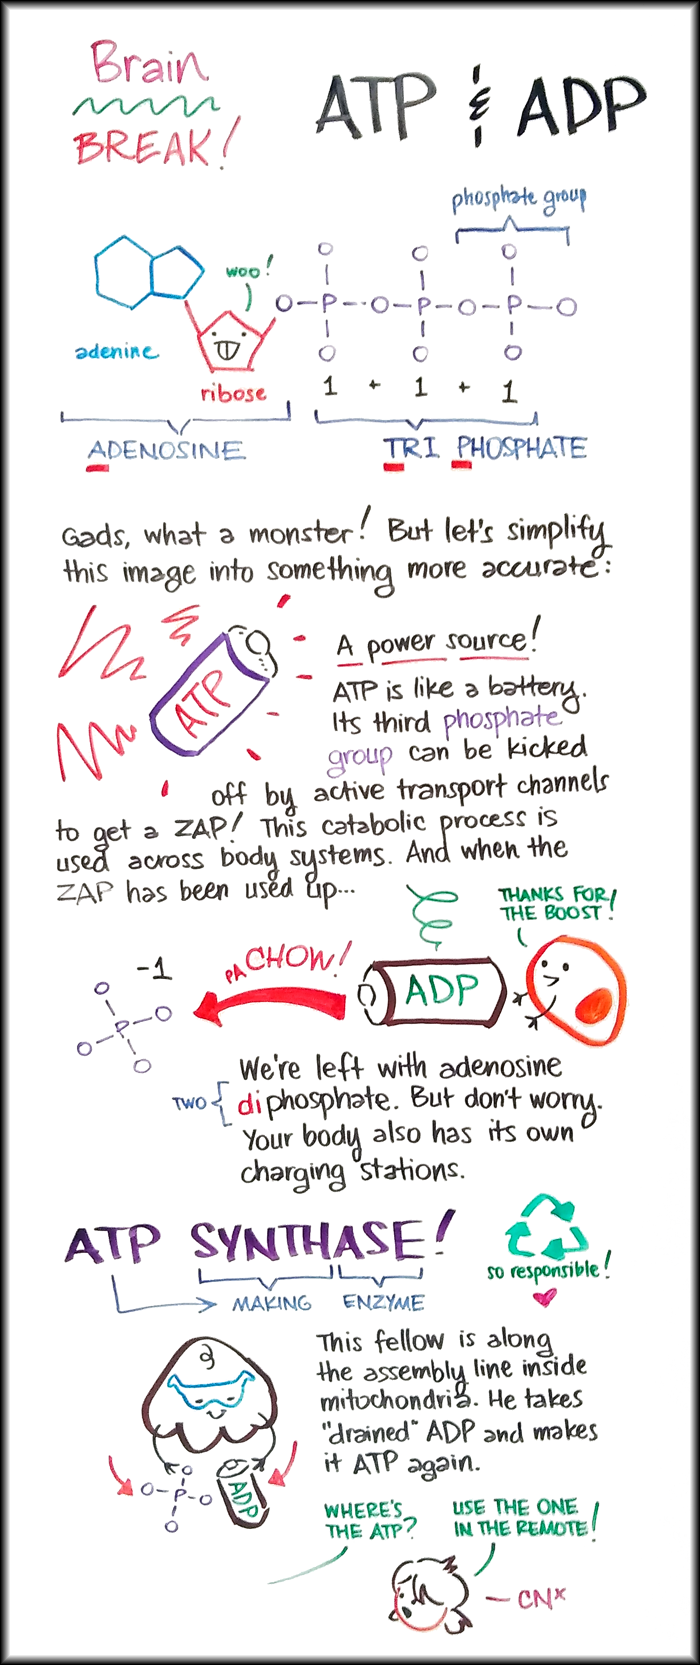 Brain
BREAK!
ATP & ADP
phosphate group
woo!
adenine
ribose
O-P--O-P-O-P-O
O O O
O O O
1 + 1 + 1
ADENOSINE
TRI PHOSPHATE
Gads, what a monster! But let's simplify
this image into something more accurate:
ATP
A power source!
ATP is like a battery.
Its third phosphate
group can be kicked
off by active transport channels
to get a ZAP! This catabolic process is
used across body systems. And when the
ZAP has been used up...
THANKS FOR
THE BOOST!
-1
PACHOW!
ADP
O
P-O
O
O
We're left with adenosine
TWO { diphosphate. But don't worry.
Your body also has its own
charging stations.
ATP SYNTHASE!
MAKING ENZYME
so responsible!
This fellow is along
the assembly line inside
mitochondria. He takes
"drained" ADP and makes
it ATP again.
O
O-P-O
O
ADP
WHERE'S
THE ATP?
USE THE ONE
IN THE REMOTE!
- CNx